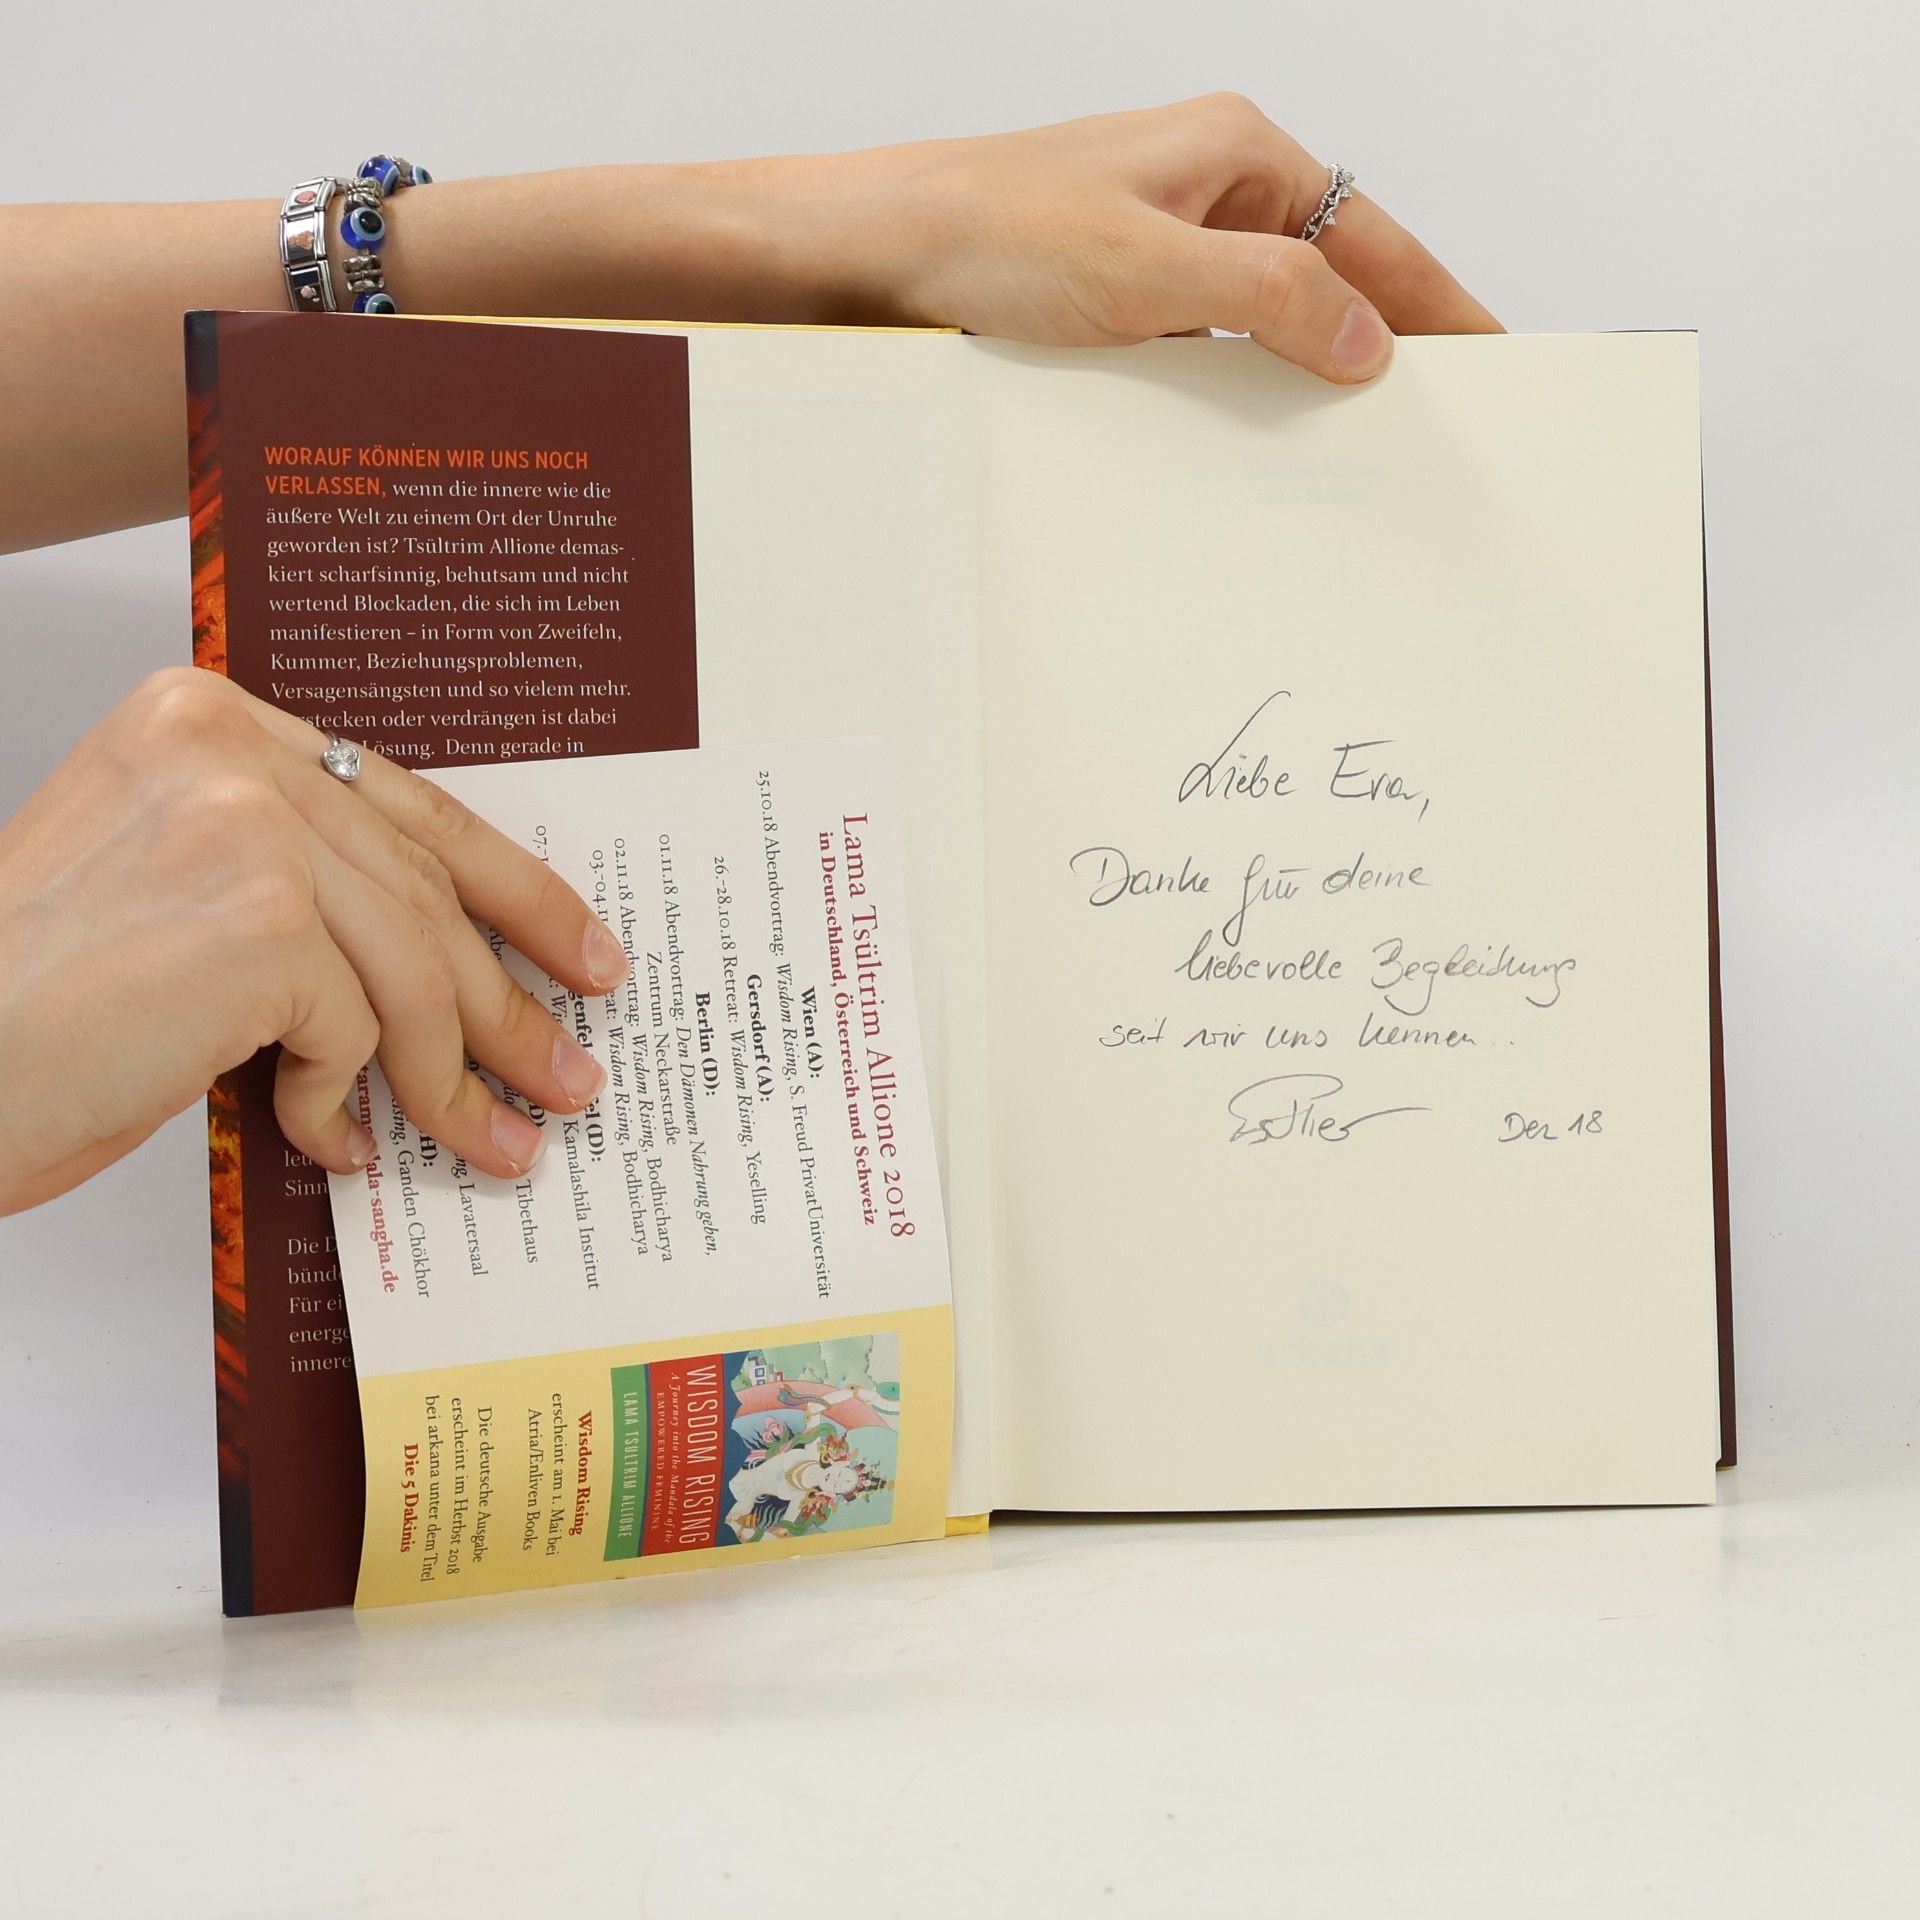 WORAUF KÖNNEN WIR UNS NOCH
VERLASSEN, wenn die innere wie die
äußere Welt zu einem Ort der Unruhe
geworden ist? Tsültrim Allione demas-
kiert scharfsinnig, behutsam und nicht
wertend Blockaden, die sich im Leben
manifestieren – in Form von Zweifeln,
Kummer, Beziehungsproblemen,
Versagensängsten und so vielem mehr.
stecken oder verdrängen ist dabei
Lösung. Denn gerade in
Sinn
Die D
bünd
Für ei
energe
innere
Lama Tsültrim Allione 2018
in Deutschland, Österreich und Schweiz
Wien (A):
25.10.18 Abendvortrag: Wisdom Rising, S. Freud PrivatUniversität
Gersdorf (A):
26.-28.10.18 Retreat: Wisdom Rising, Yeselling
Berlin (D):
01.11.18 Abendvortrag: Den Dämonen Nahrung geben,
Zentrum Neckarstraße Bodhicharya
02.11.18 Abendvortrag: Wisdom Rising, Bodhicharya
03.-04.11 eat: Wisdom Rising, Bodhicharya
genfel el (D):
07.- : Wis Kamalashila Institut
D)
Abe do Tibethaus
ng, Lavatersaal
H):
sing, Ganden Chökhor
taram ala-sangha.de
WISDOM RISING
A Journey into the Mandala of the
EMPOWERED FEMININE
LAMA TSULTRIM ALLIONE
Wisdom Rising
erscheint am 1. Mai bei
Atria/Enliven Books
Die deutsche Ausgabe
erscheint im Herbst 2018
bei arkana unter dem Titel
Die 5 Dakinis
Liebe Eva,
Danke für deine
liebevolle Begleitung
seit wir uns kennen...
Esther Dez 18